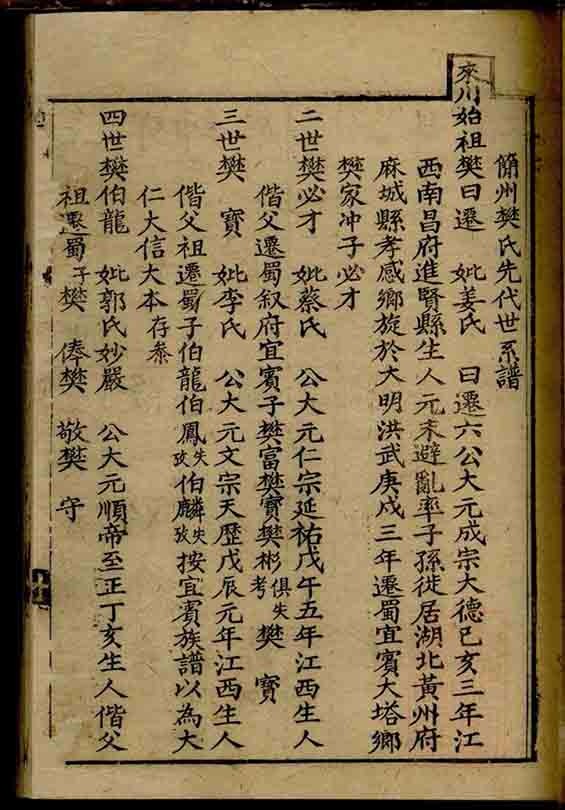 簡州樊氏先代世系譜
來川始祖樊曰遷　妣姜氏　曰遷六公大元成宗大德己亥三年江
西南昌府進賢縣生人元末避亂率子孫徙居湖北黃州府
麻城縣孝感鄉旋於大明洪武庚戌三年遷蜀宜賓大塔鄉
樊家冲子必才
二世樊必才　妣蔡氏　公大元仁宗延祐戊午五年江西生人
偕父遷蜀叙府宜賓子樊富樊寶樊彬俱失考樊　寶
三世樊　寶　妣李氏　公大元文宗天歷戊辰元年江西生人
偕父祖遷蜀子伯龍伯鳳失攷伯麟失攷按宜賓族譜以為大
仁大信大本存叅
四世樊伯龍　妣郭氏妙嚴　公大元順帝至正丁亥生人偕父
祖遷蜀子樊　俸樊　敬樊　守